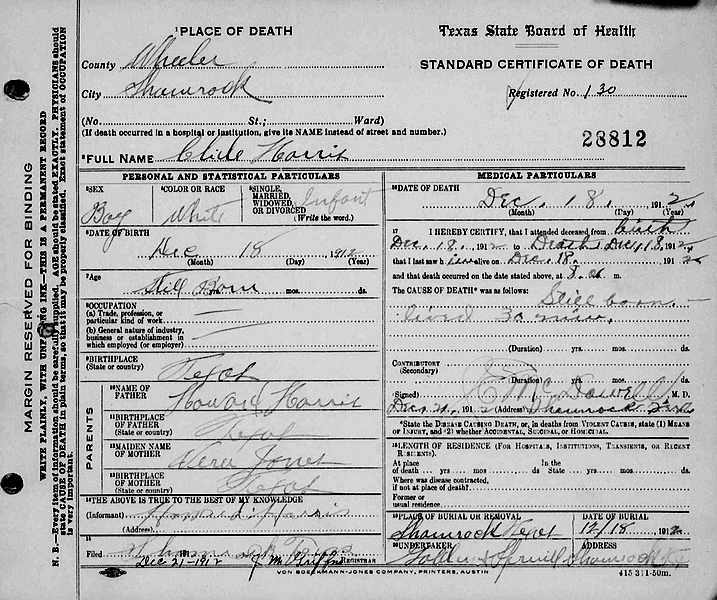 PLACE OF DEATH
County Wheeler
City Shamrock
(No. St.; Ward)
(If death occurred in a hospital or institution, give its NAME instead of street and number.)
Texas State Board of Health
STANDARD CERTIFICATE OF DEATH
Registered No. 130
28812
²FULL NAME Clide Harris
PERSONAL AND STATISTICAL PARTICULARS
³SEX Boy
⁴COLOR OR RACE White
⁵SINGLE, MARRIED, WIDOWED, OR DIVORCED (Write the word.) Infant
⁶DATE OF BIRTH
Dec 18 1912
(Month) (Day) (Year)
⁷Age
Still Born
yrs. mos. ds.
⁸OCCUPATION
(a) Trade, profession, or particular kind of work
(b) General nature of industry, business or establishment in which employed (or employer)
⁹BIRTHPLACE
(State or country) Texas
PARENTS
¹⁰NAME OF FATHER Howard Harris
¹¹BIRTHPLACE OF FATHER (State or country) Texas
¹²MAIDEN NAME OF MOTHER Vera Jones
¹³BIRTHPLACE OF MOTHER (State or country) Texas
¹⁴THE ABOVE IS TRUE TO THE BEST OF MY KNOWLEDGE
(Informant) Harris
(Address)
¹⁵
Filed 191
Dec 21-1912 J M REGISTRAR
MEDICAL PARTICULARS
¹⁶DATE OF DEATH
Dec. 18. 1912
(Month) (Day) (Year)
¹⁷ I HEREBY CERTIFY, that I attended deceased from birth
Dec. 18. 1912 to Death Dec. 18. 1912
that I last saw h alive on Dec. 18. 1912
and that death occurred on the date stated above, at 8. a m.
The CAUSE OF DEATH* was as follows:
Still born. —
lived 30 min.
(Duration) yrs. mos. ds.
CONTRIBUTORY
(Secondary)
(Duration) yrs. mos. ds.
(Signed) McDowell M. D.
Dec. 21. 1912 (Address) Shamrock Texas
*State the DISEASE CAUSING DEATH, or, in deaths from VIOLENT CAUSES, state (1) MEANS OF INJURY, and (2) whether ACCIDENTAL, SUICIDAL, OR HOMICIDAL.
¹⁸LENGTH OF RESIDENCE (FOR HOSPITALS, INSTITUTIONS, TRANSIENTS, OR RECENT RESIDENTS.)
At place of death yrs. mos. ds. In the State yrs. mos. ds.
Where was disease contracted, if not at place of death?
Former or usual residence
¹⁹PLACE OF BURIAL OR REMOVAL
Shamrock Texas
DATE OF BURIAL
12/18 1912
²⁰UNDERTAKER
ADDRESS
Shamrock
VON BOECKMANN-JONES COMPANY, PRINTERS, AUSTIN
415 311-50m.
MARGIN RESERVED FOR BINDING
WRITE PLAINLY, WITH UNFADING INK—THIS IS A PERMANENT RECORD
N. B.—Every item of information should be carefully supplied. AGE should be stated EXACTLY. PHYSICIANS should
state CAUSE OF DEATH in plain terms, so that it may be properly classified. Exact statement of OCCUPATION
is very important.